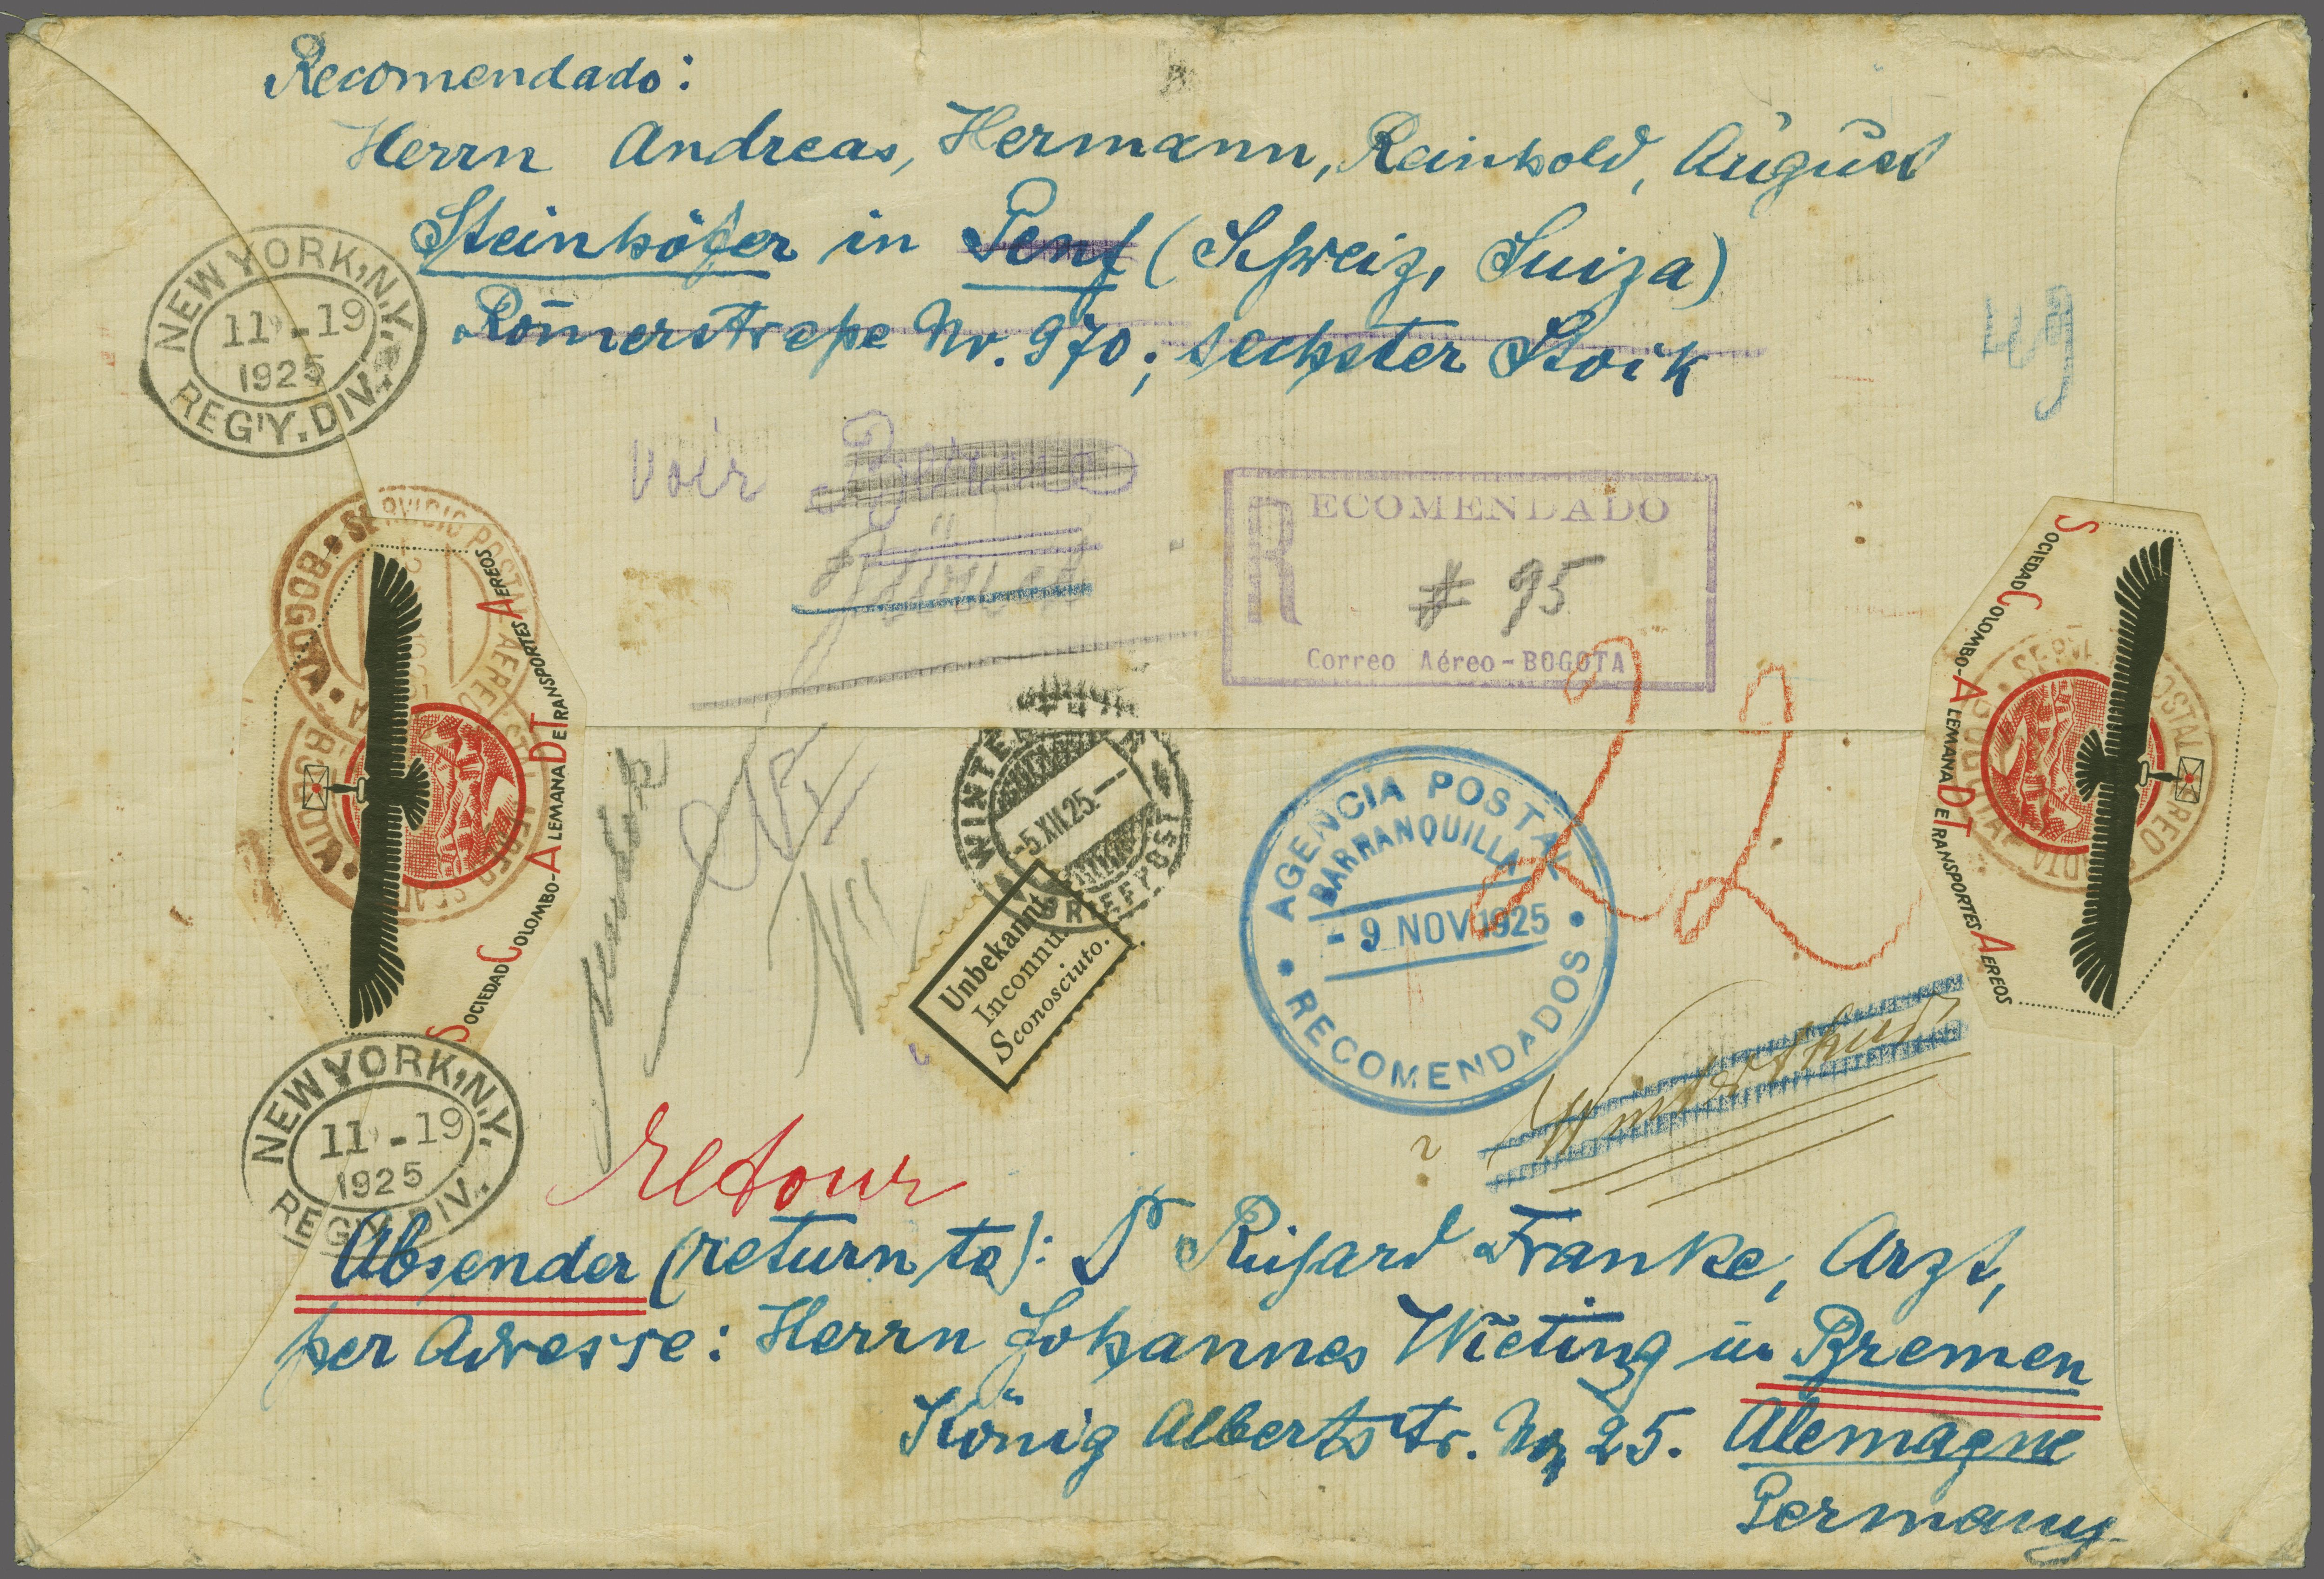 Recomendado:
Herrn Andreas, Hermann, Reinhold, August
Steinhöfer in Genf (Schweiz, Suiza)
Römerstrasse Nr. 970; sechster Stock
NEW YORK, N.Y.
11 - 19
1925
REG'Y. DIV.
49
voir
RECOMENDADO
# 95
Correo Aéreo - BOGOTA
SERVICIO POSTAL AEREO
BOGOTA
SOCIEDAD COLOMBO-ALEMANA DE TRANSPORTES AEREOS
SOCIEDAD COLOMBO-ALEMANA DE TRANSPORTES AEREOS
22
-5.XII.25.-
BRIEFPOST
Unbekannt
Inconnu
Sconosciuto.
AGENCIA POSTAL
BARRANQUILLA
- 9 NOV 1925
RECOMENDADOS
? Winterthur
NEW YORK, N.Y.
11 - 19
1925
REG'Y. DIV.
retour
Absender (return to): Dr Richard Franke, Arzt,
per Adresse: Herrn Johannes Wieting in Bremen
König Albertstr. No 25. Alemagne
Germany